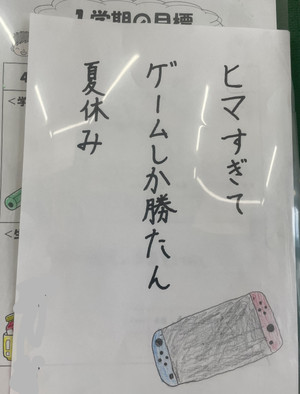 1学期の目標
ヒマすぎて
ゲームしか勝たん
夏休み